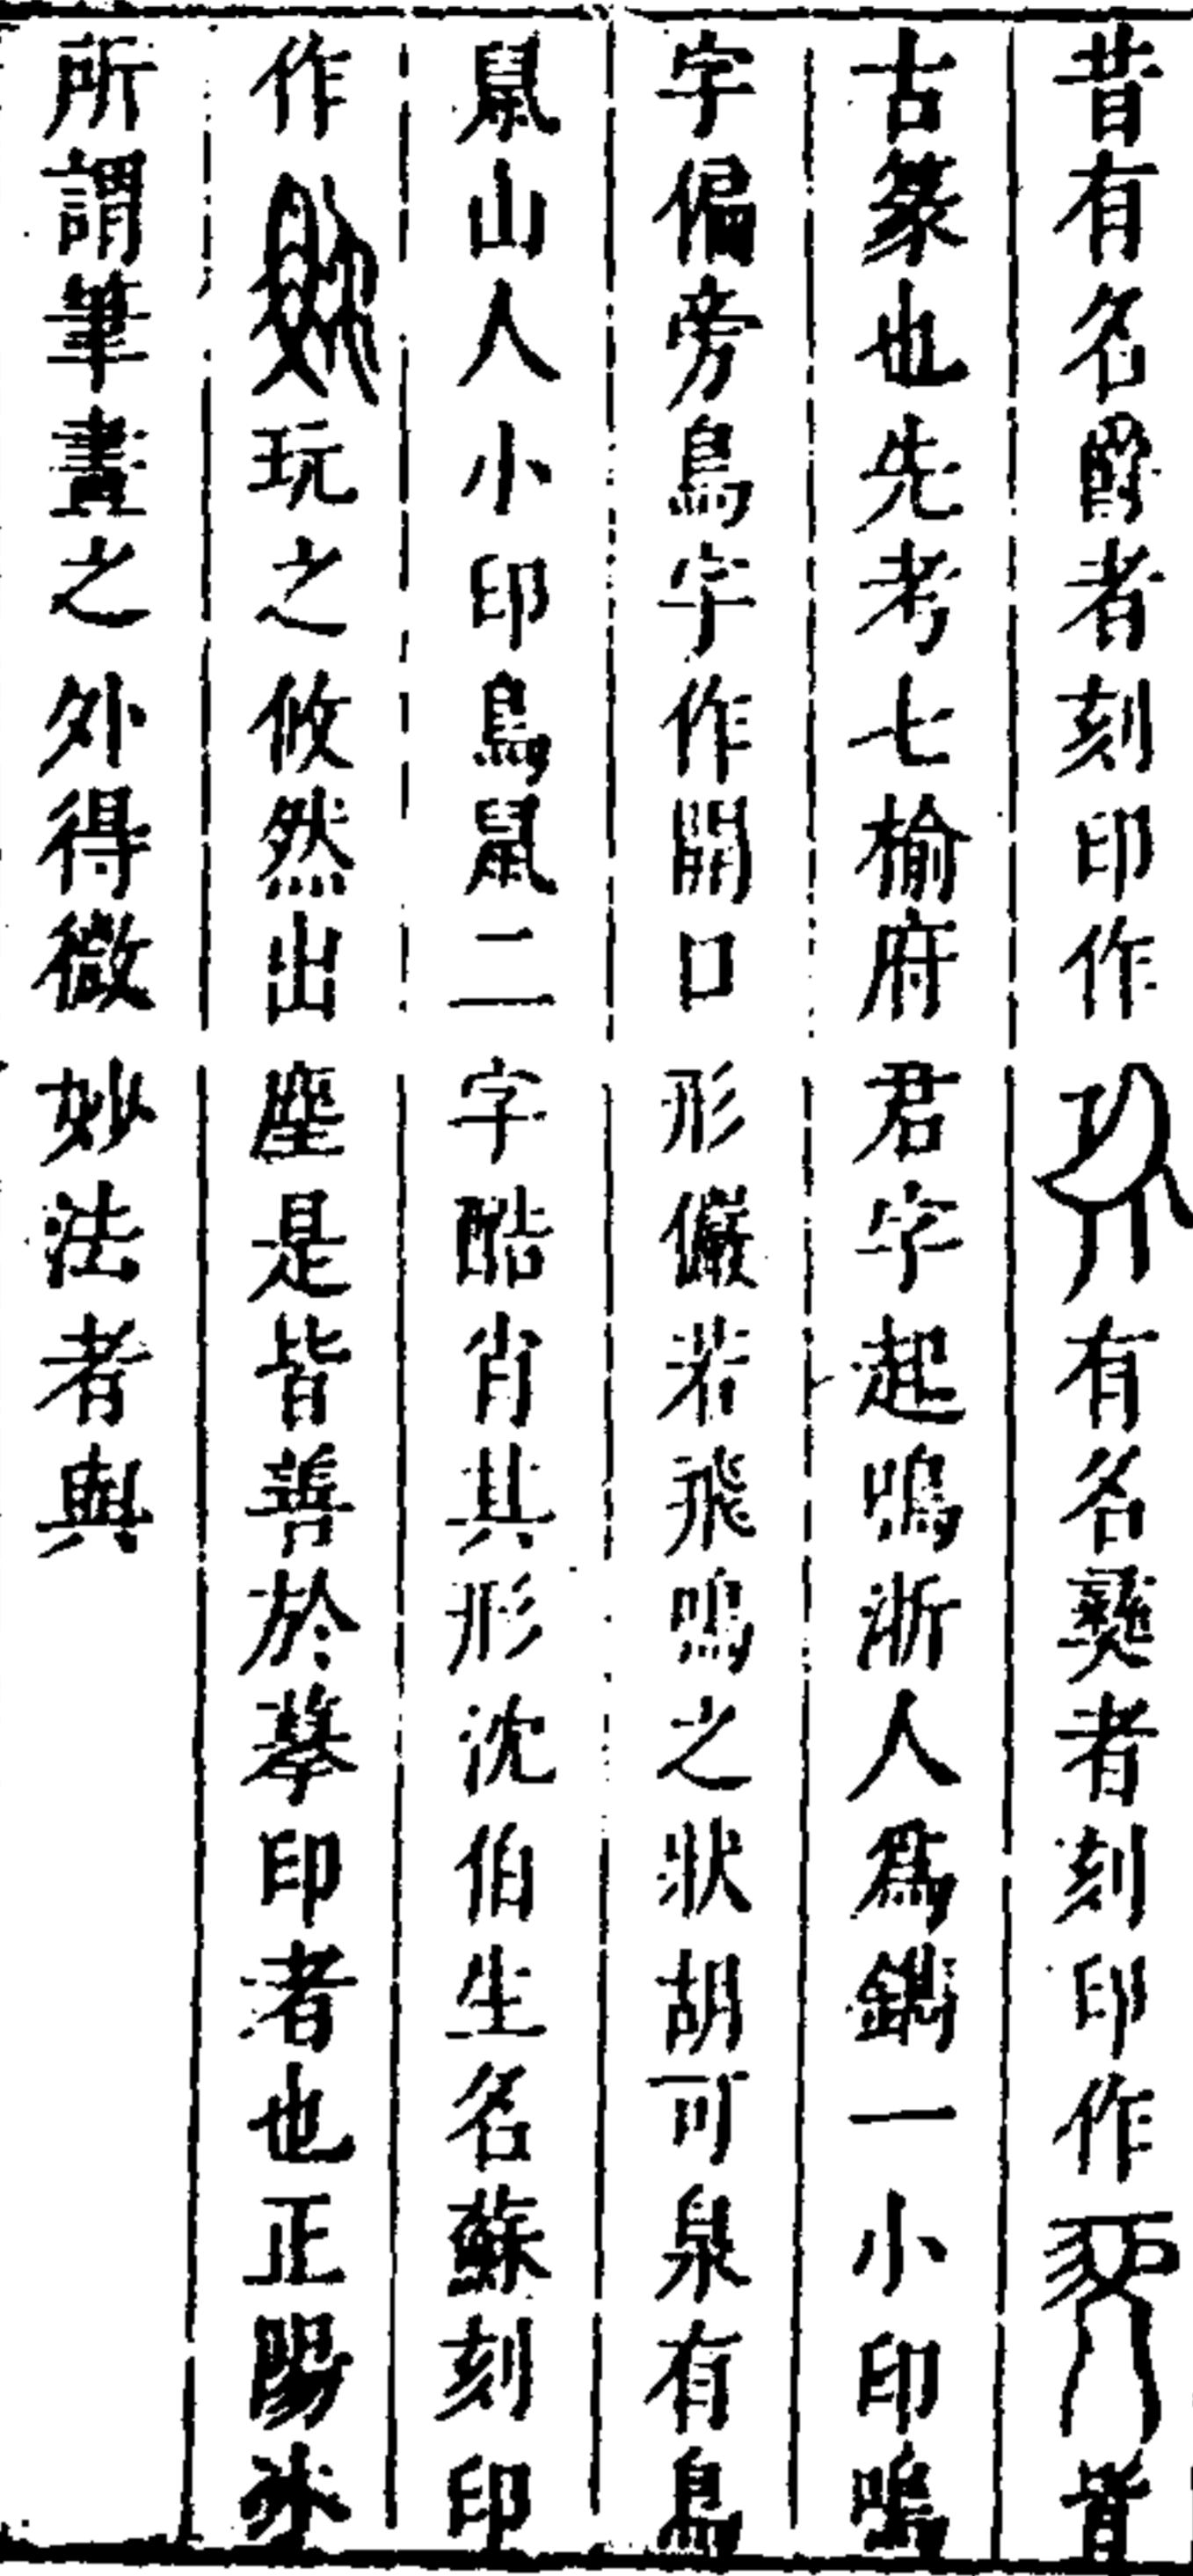 昔有名爵者刻印作有名彝者刻印作皆
古篆也先考七榆府君字起鳴浙人爲鐫一小印鳴
字偏旁鳥字作開口形儼若飛鳴之狀胡可泉有鳥
鼠山人小印鳥鼠二字酷肖其形沈伯生名蘇刻印
作玩之攸然出塵是皆善於摹印者也正陽冰
所謂筆畫之外得微妙法者與